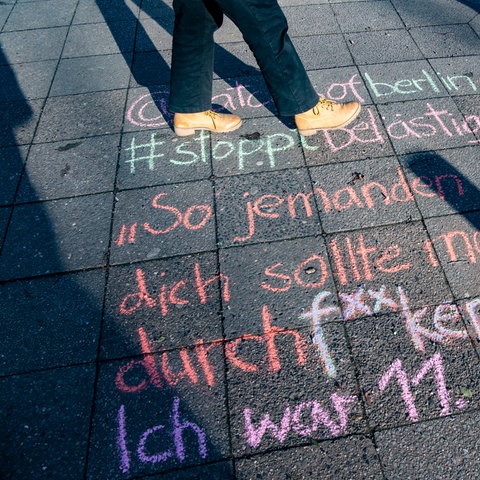 of berlin
#stoppt Belästig
„So jemanden w
dich sollte ma
durch fxxken
Ich war 11.